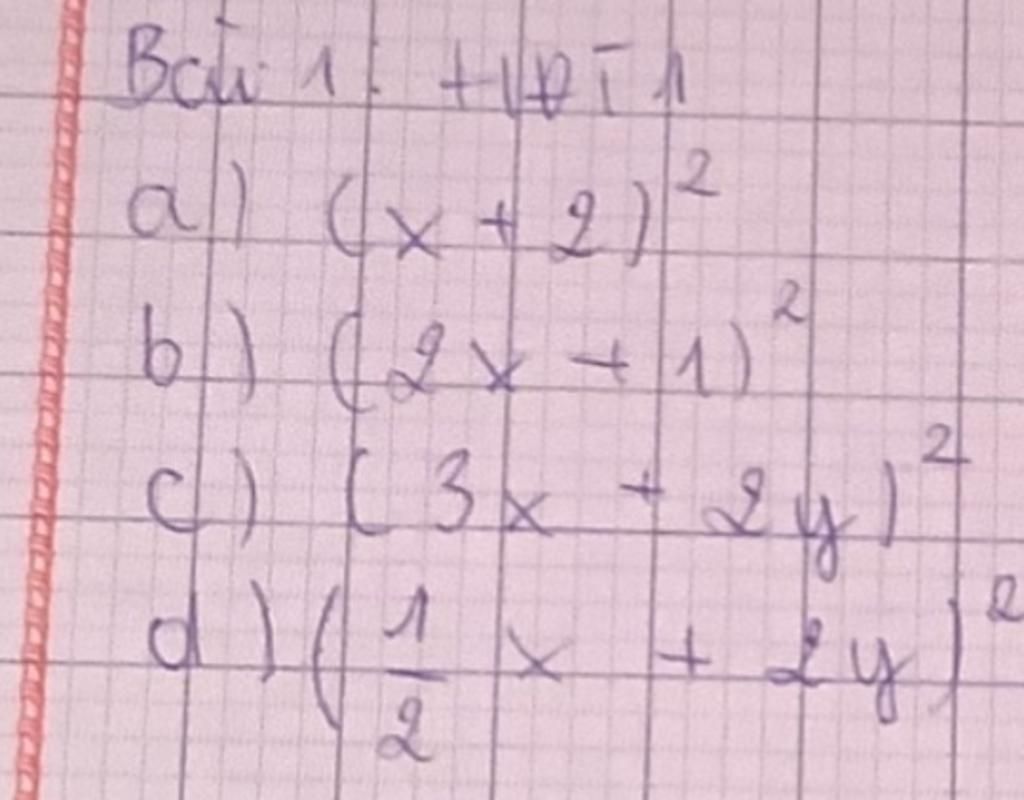 Bài 1: HĐT 1
a) (x + 2)²
b) (2x + 1)²
c) (3x + 2y)²
d) (1/2 x + 2y)²